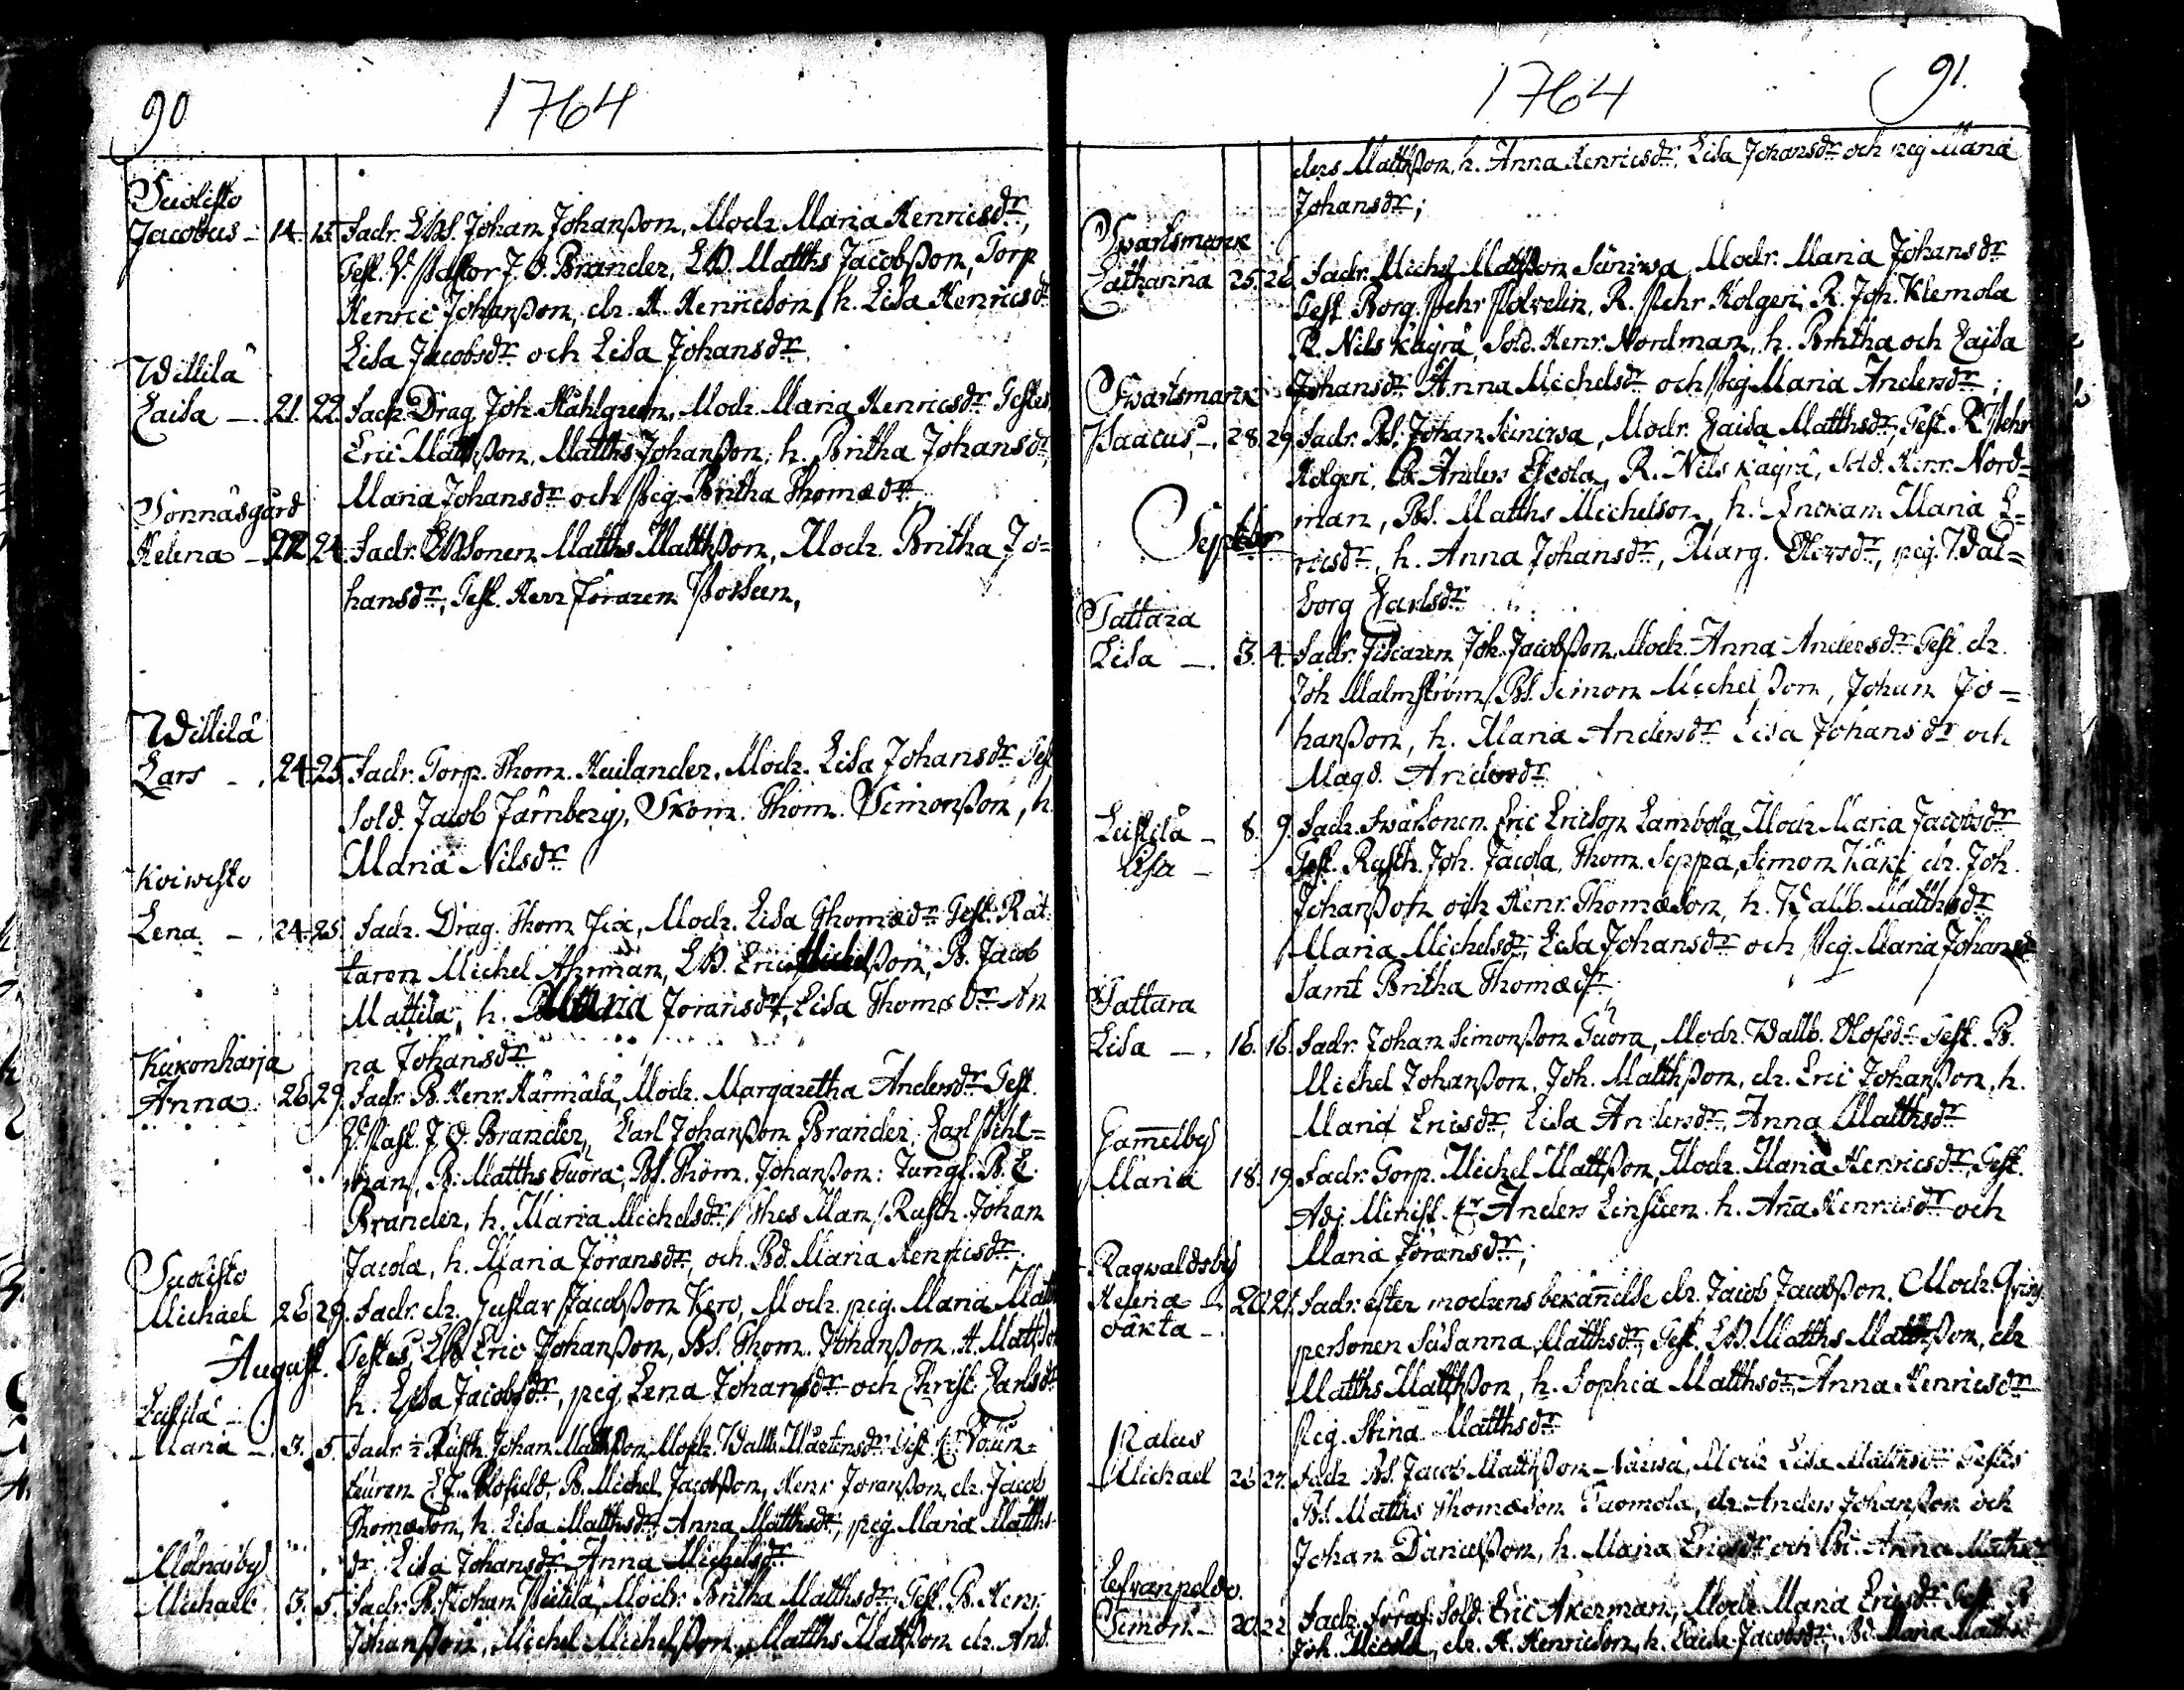 90
1764
Suolisto
Jacobus - 14. 15. Fadr. LBd. Johan Johanßon, Modr. Maria Henricsdr,
Test. V. Pastor J. O. Brander, LB. Matths Jacobßon, Torp
Henric Johanßon, dr. H. Henricson, h. Lisa Henricsdr
Lisa Jacobsdr och Lisa Johansdr.
Willilä
Caisa - 21. 22. Fadr. Drag Joh. Stahlgren, Modr. Maria Henricsdr Testes
Eric Matthßon, Matths Johanßon, h. Britha Johansdr,
Maria Johansdr och Pig. Britha Thomædr
Sonnäsgård
Helena - 22. 24. Fadr. Matths Matthßon, Modr. Britha Jo=
hansdr, Test. Herr
Willilä
Lars - 24. 25. Fadr. Torp. Thom. Huilander, Modr. Lisa Johansdr Test
Sold. Jacob Järnberg, Skom. Thom. Simonßon, h.
Maria Nilsdr
Koiwisto
Lena - 24. 25. Fadr. Drag. Thom Fix, Modr. Lisa Thomædr Test. Råt
taren Michel Ahrman, LB. Eric Michelßon, B. Jacob
Mattila, h. Maria Joransdr, Lisa Thomædr An
na Johansdr
Kukonharja
Anna 26. 29. Fadr. B. Henr. Härmälä, Modr. Margaretha Andersdr Test.
V. Past. J. O. Brander, Carl Johanßon Brander, Carl Pihl=
man, B. Matths Tuora, Bd. Thom. Johanßon: Jungf. B. C.
Brander, h. Maria Michelsdr, Thes Man, Rusth. Johan
Jacola, h. Maria Joransdr, och Bd. Maria Henricsdr.
Suolisto
Michael 26. 29. Fadr. dr. Gustav Jacobßon Kero, Modr. pig. Maria Matth
August. Testes, LB Eric Johanßon, Bd. Thom. Johanßon. H. Matthßon
h. Lisa Jacobsdr, pig Lena Johansdr och Christ. Carlsdr
Leistilä
Maria - 3. 5. Fadr. Rusth. Johan Matthßon, Modr. Wallb. Mårtensdr Test.
B. Michel Jacobßon, Henr. Joranßon, dr. Jacob
Thomæson, h. Lisa Matthsdr, Anna Matthsdr, pig. Maria Matths=
dr Lisa Johansdr Anna Michelsdr
Molnäsby
Michael 3. 5. Fadr. B. Johan Pietilä, Modr. Britha Matthsdr, Test. B. Henr.
Johanßon, Michel Michelßon, Matths Mattßon dr. And.
1764
91.
ders Matthßon, h. Anna Henricsdr, Lisa Johansdr och pig Maria
Johansdr;
Swartsmark
Catharina 25. 26. Fadr. Michel Matthßon Suniwa, Modr. Maria Johansdr
Test. Borg. Pehr Polvelin, R. Pehr Holgeri, R. Joh. Klemola
R. Nils Kägrä, Sold. Henr. Nordman, h. Britha och Caisa
Johansdr Anna Michelsdr och Pig Maria Andersdr;
Swartsmark
Isaacus - 28. 29. Fadr. Bd. Johan Suniwa, Modr. Caisa Matthsdr, Test. R. Pehr
Holgeri, R. Anders Eskola, R. Nils Kägrä, Sold. Henr. Nord=
man, Bd. Matths Michelson, h. Enckan Maria E=
Septebr
ricsdr, h. Anna Johansdr, Marg. Olofsdr, pig. Wal=
borg Carlsdr
Tattara
Lisa - 3. 4. Fadr. Fiscaren Joh. Jacobßon, Modr. Anna Andersdr Test. dr.
Joh Malmström, Bd. Simon Michelßon, Johan Jo=
hanßon, h. Maria Andersdr Lisa Johansdr och
Magd. Andersdr
Leistilä - 8. 9. Fadr. Eric Ericson Lambola, Modr Maria Jacobsdr
Lisa - Test. Rusth. Joh. Jacola, Thom. Seppä, Simon Käki dr. Joh.
Johanßon och Henr. Thomæson, h. Wallb. Matthsdr
Maria Michelsdr, Lisa Johansdr och Pig. Maria Johansdr
Samt Britha Thomædr.
Tattara
Lisa - 16. 16. Fadr. Johan Simonßon Tuora, Modr. Wallb. Olofsdr Test. B.
Michel Johanßon, Joh. Matthßon, dr. Eric Johanßon, h.
Maria Ericsdr, Lisa Andersdr, Anna Matthsdr
Gamelby
Maria 18. 19. Fadr. Torp. Michel Mattßon, Modr. Maria Henricsdr, Test.
Adj. Minist. Hr Anders Linsteen h. Ana Henricsdr och
Maria Joransdr;
Ragwaldsby
Helena - 20. 21. Fadr. efter modrens bekänelse dr. Jacob Jacobßon. Modr. Qvins
oäkta - personen Susanna Matthsdr, Test. LB. Matths Matthßon, dr
Matths Matthßon, h. Sophia Matthsdr, Anna Henricsdr
Pig. Stina Matthsdr
Palus
Michael 26. 27. Fadr Bd. Jacob Matthßon Modr Lisa Matthsdr Testes
Bd. Matths Thomæson Tuomola, dr Anders Johanßon och
Johan Danielßon, h. Maria Ericsdr och Pi. Anna Mathsdr
Lefvanpeldo.
Simon - 20. 22. Fadr. Sold. Eric Åkerman, Modr Maria Ericsdr Test. B
Joh. dr. H. Henricson, h. Caisa Jacobsdr, Bd. Maria Matths